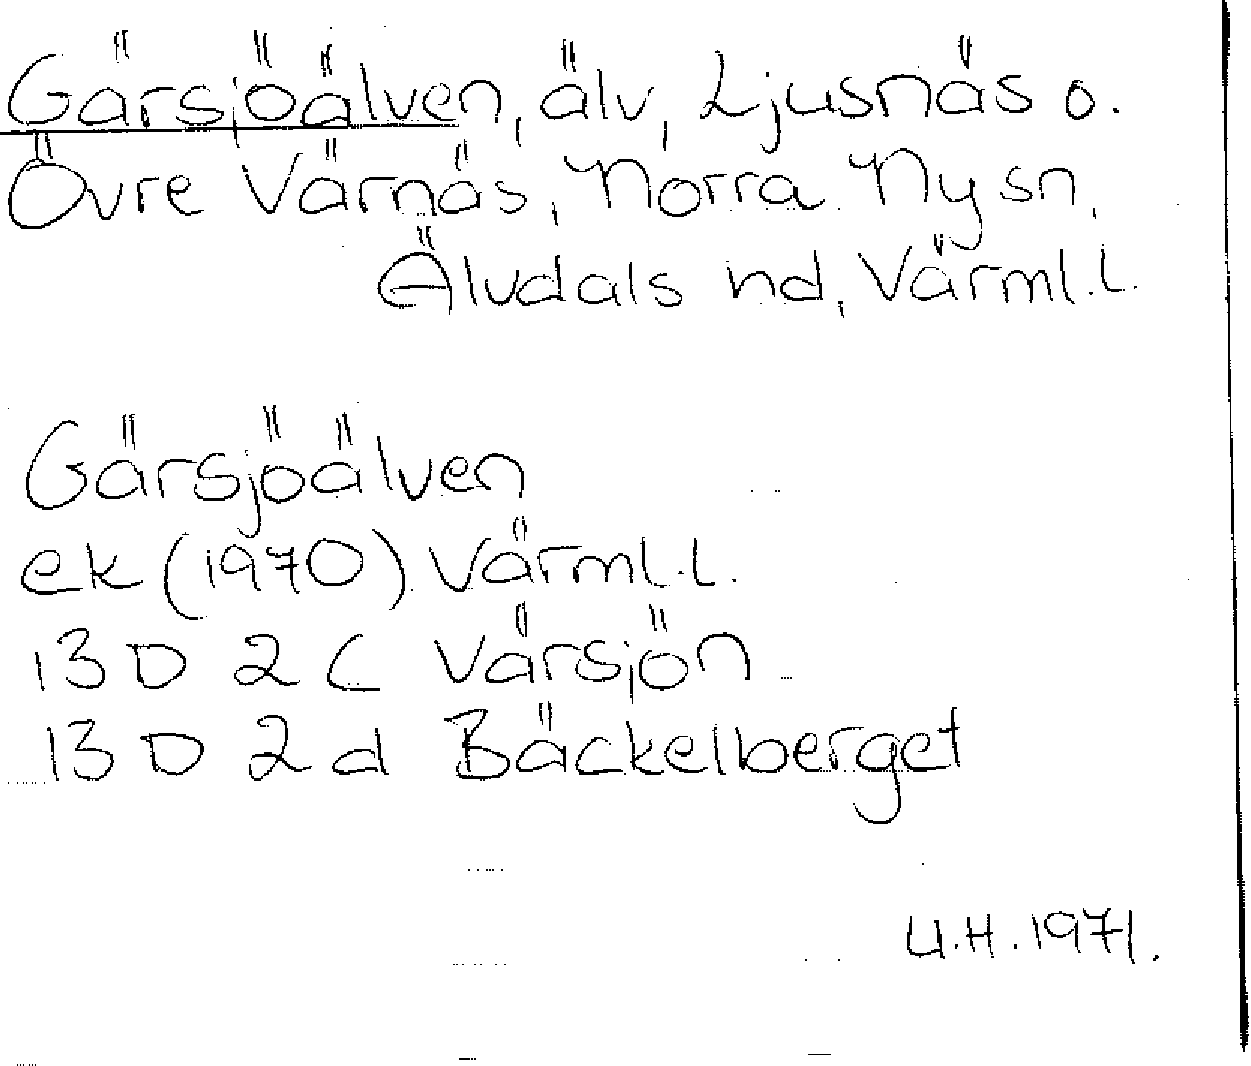 Gärsjöälven, älv, Ljusnäs o.
Övre Värnäs, Norra Ny sn,
Älvdals hd, Värml.l.
Gärsjöälven
ek (1970) Värml.l.
13 D 2 C Värsjön
13 D 2 d Bäckelberget
U.H. 1971.